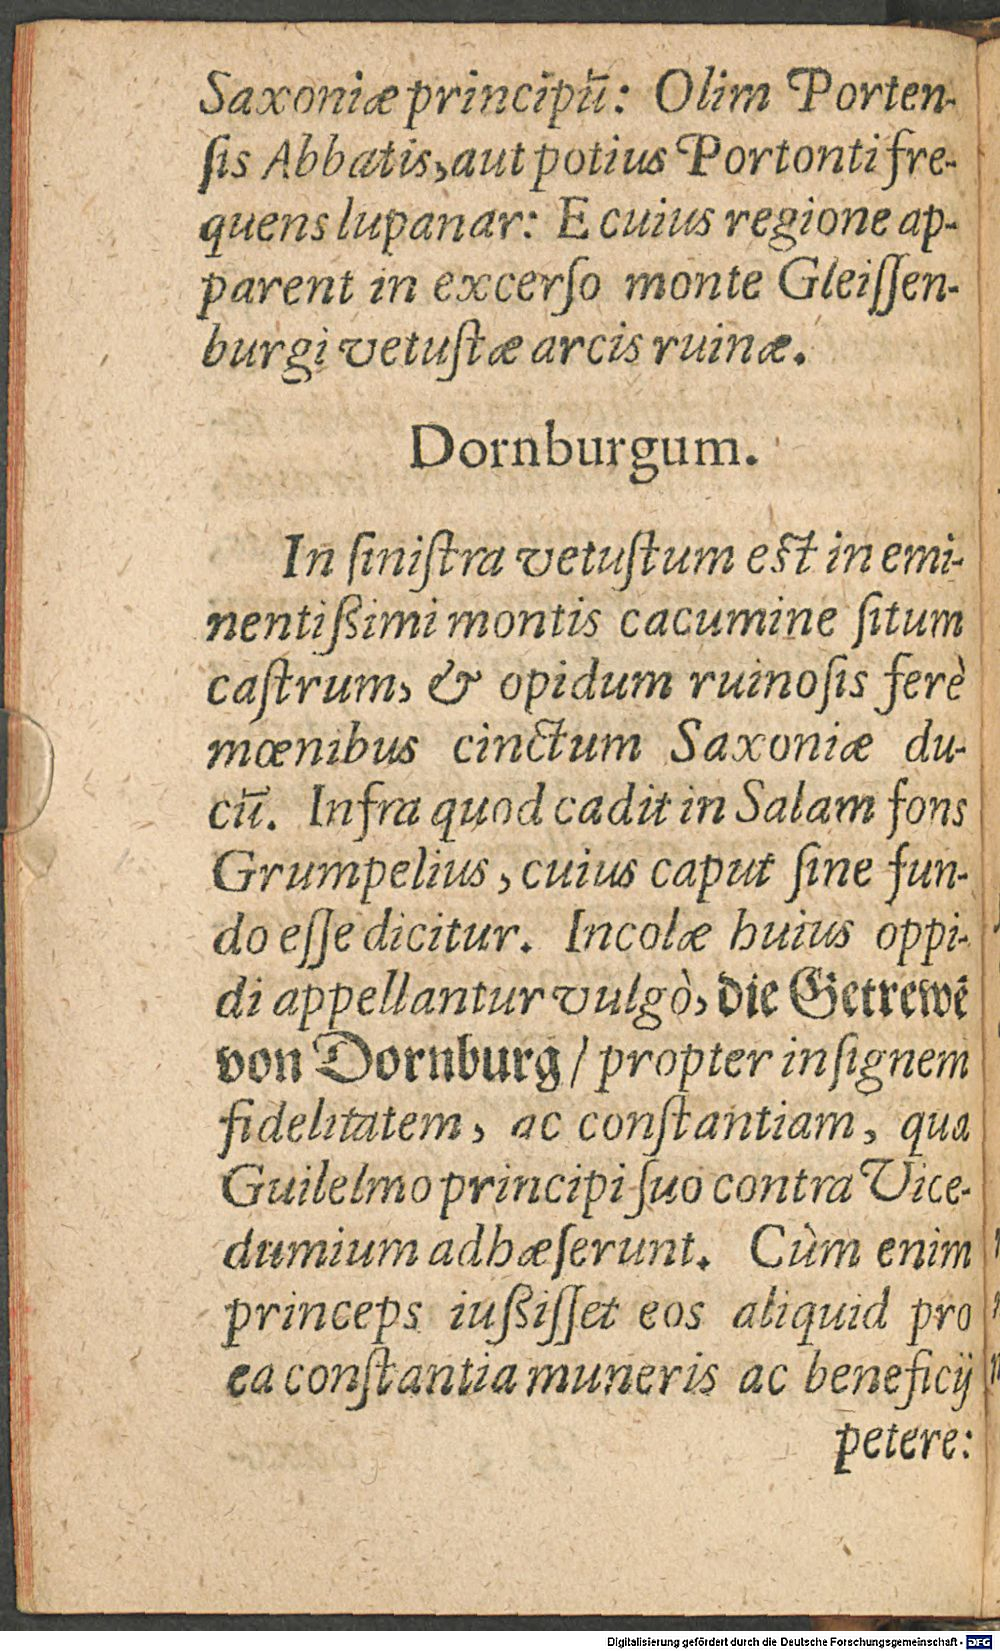 Saxoniæ principũ: Olim Porten-
ſis Abbatis, aut potius Portonti fre-
quens lupanar: E cuius regione ap-
parent in excerſo monte Gleiſſen-
burgi vetuſtæ arcis ruinæ.
Dornburgum.
In ſiniſtra vetuſtum est in emi-
nentiſsimi montis cacumine ſitum
caſtrum, & opidum ruinoſis ferè
mœnibus cinctum Saxoniæ du-
cũ. Infra quod cadit in Salam fons
Grumpelius, cuius caput ſine fun-
do eſſe dicitur. Incolæ huius oppi-
di appellantur vulgò, die Getrewẽ
von Dornburg / propter inſignem
fidelitatem, ac conſtantiam, qua
Guilelmo principi ſuo contra Vice-
dumium adhæſerunt. Cùm enim
princeps iuſsiſſet eos aliquid pro
ea conſtantia muneris ac beneficij
petere:
Digitalisierung gefördert durch die Deutsche Forschungsgemeinschaft - DFG